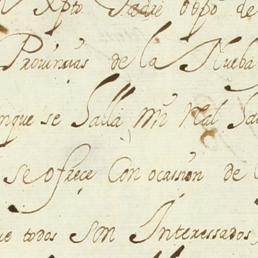 Xpto Padre obpo de
Provincias de la Nueba
nque se Salla mi Real Sa
se ofreçe Con ocassion de
ue todos son Interessados